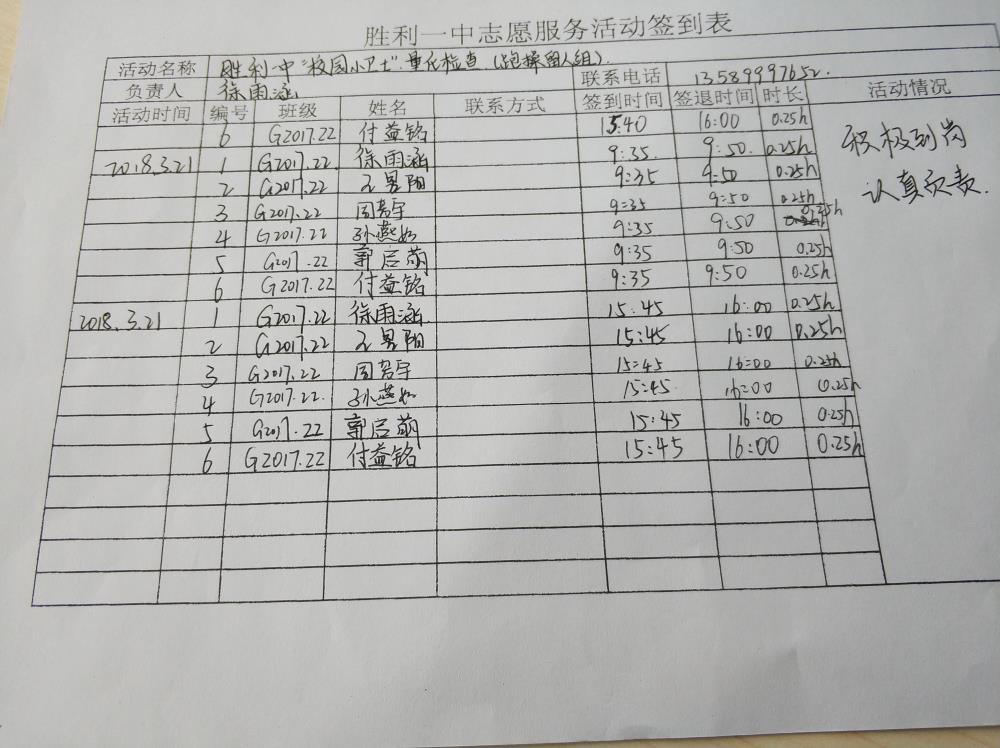 胜利一中志愿服务活动签到表
活动名称 胜利一中“校园小卫士”量化检查（跑操留人组） 联系电话 13589997652.
负责人 徐雨涵
活动时间 编号 班级 姓名 联系方式 签到时间 签退时间 时长 活动情况
6 G2017.22 付益铭 15:40 16:00 0.25h
2018.3.21 1 G2017.22 徐雨涵 9:35 9:50 0.25h
2 G2017.22 王男阳 9:35 9:50 0.25h
3 G2017.22 9:35 9:50 0.25h
4 G2017.22 孙燕如 9:35 9:50 0.25h
5 G2017.22 郭启萌 9:35 9:50 0.25h
6 G2017.22 付益铭 9:35 9:50 0.25h
2018.3.21 1 G2017.22 徐雨涵 15:45 16:00 0.25h
2 G2017.22 王男阳 15:45 16:00 0.25h
3 G2017.22 15:45 16:00 0.25h
4 G2017.22 孙燕如 15:45 16:00 0.25h
5 G2017.22 郭启萌 15:45 16:00 0.25h
6 G2017.22 付益铭 15:45 16:00 0.25h
积极到岗
认真负责.